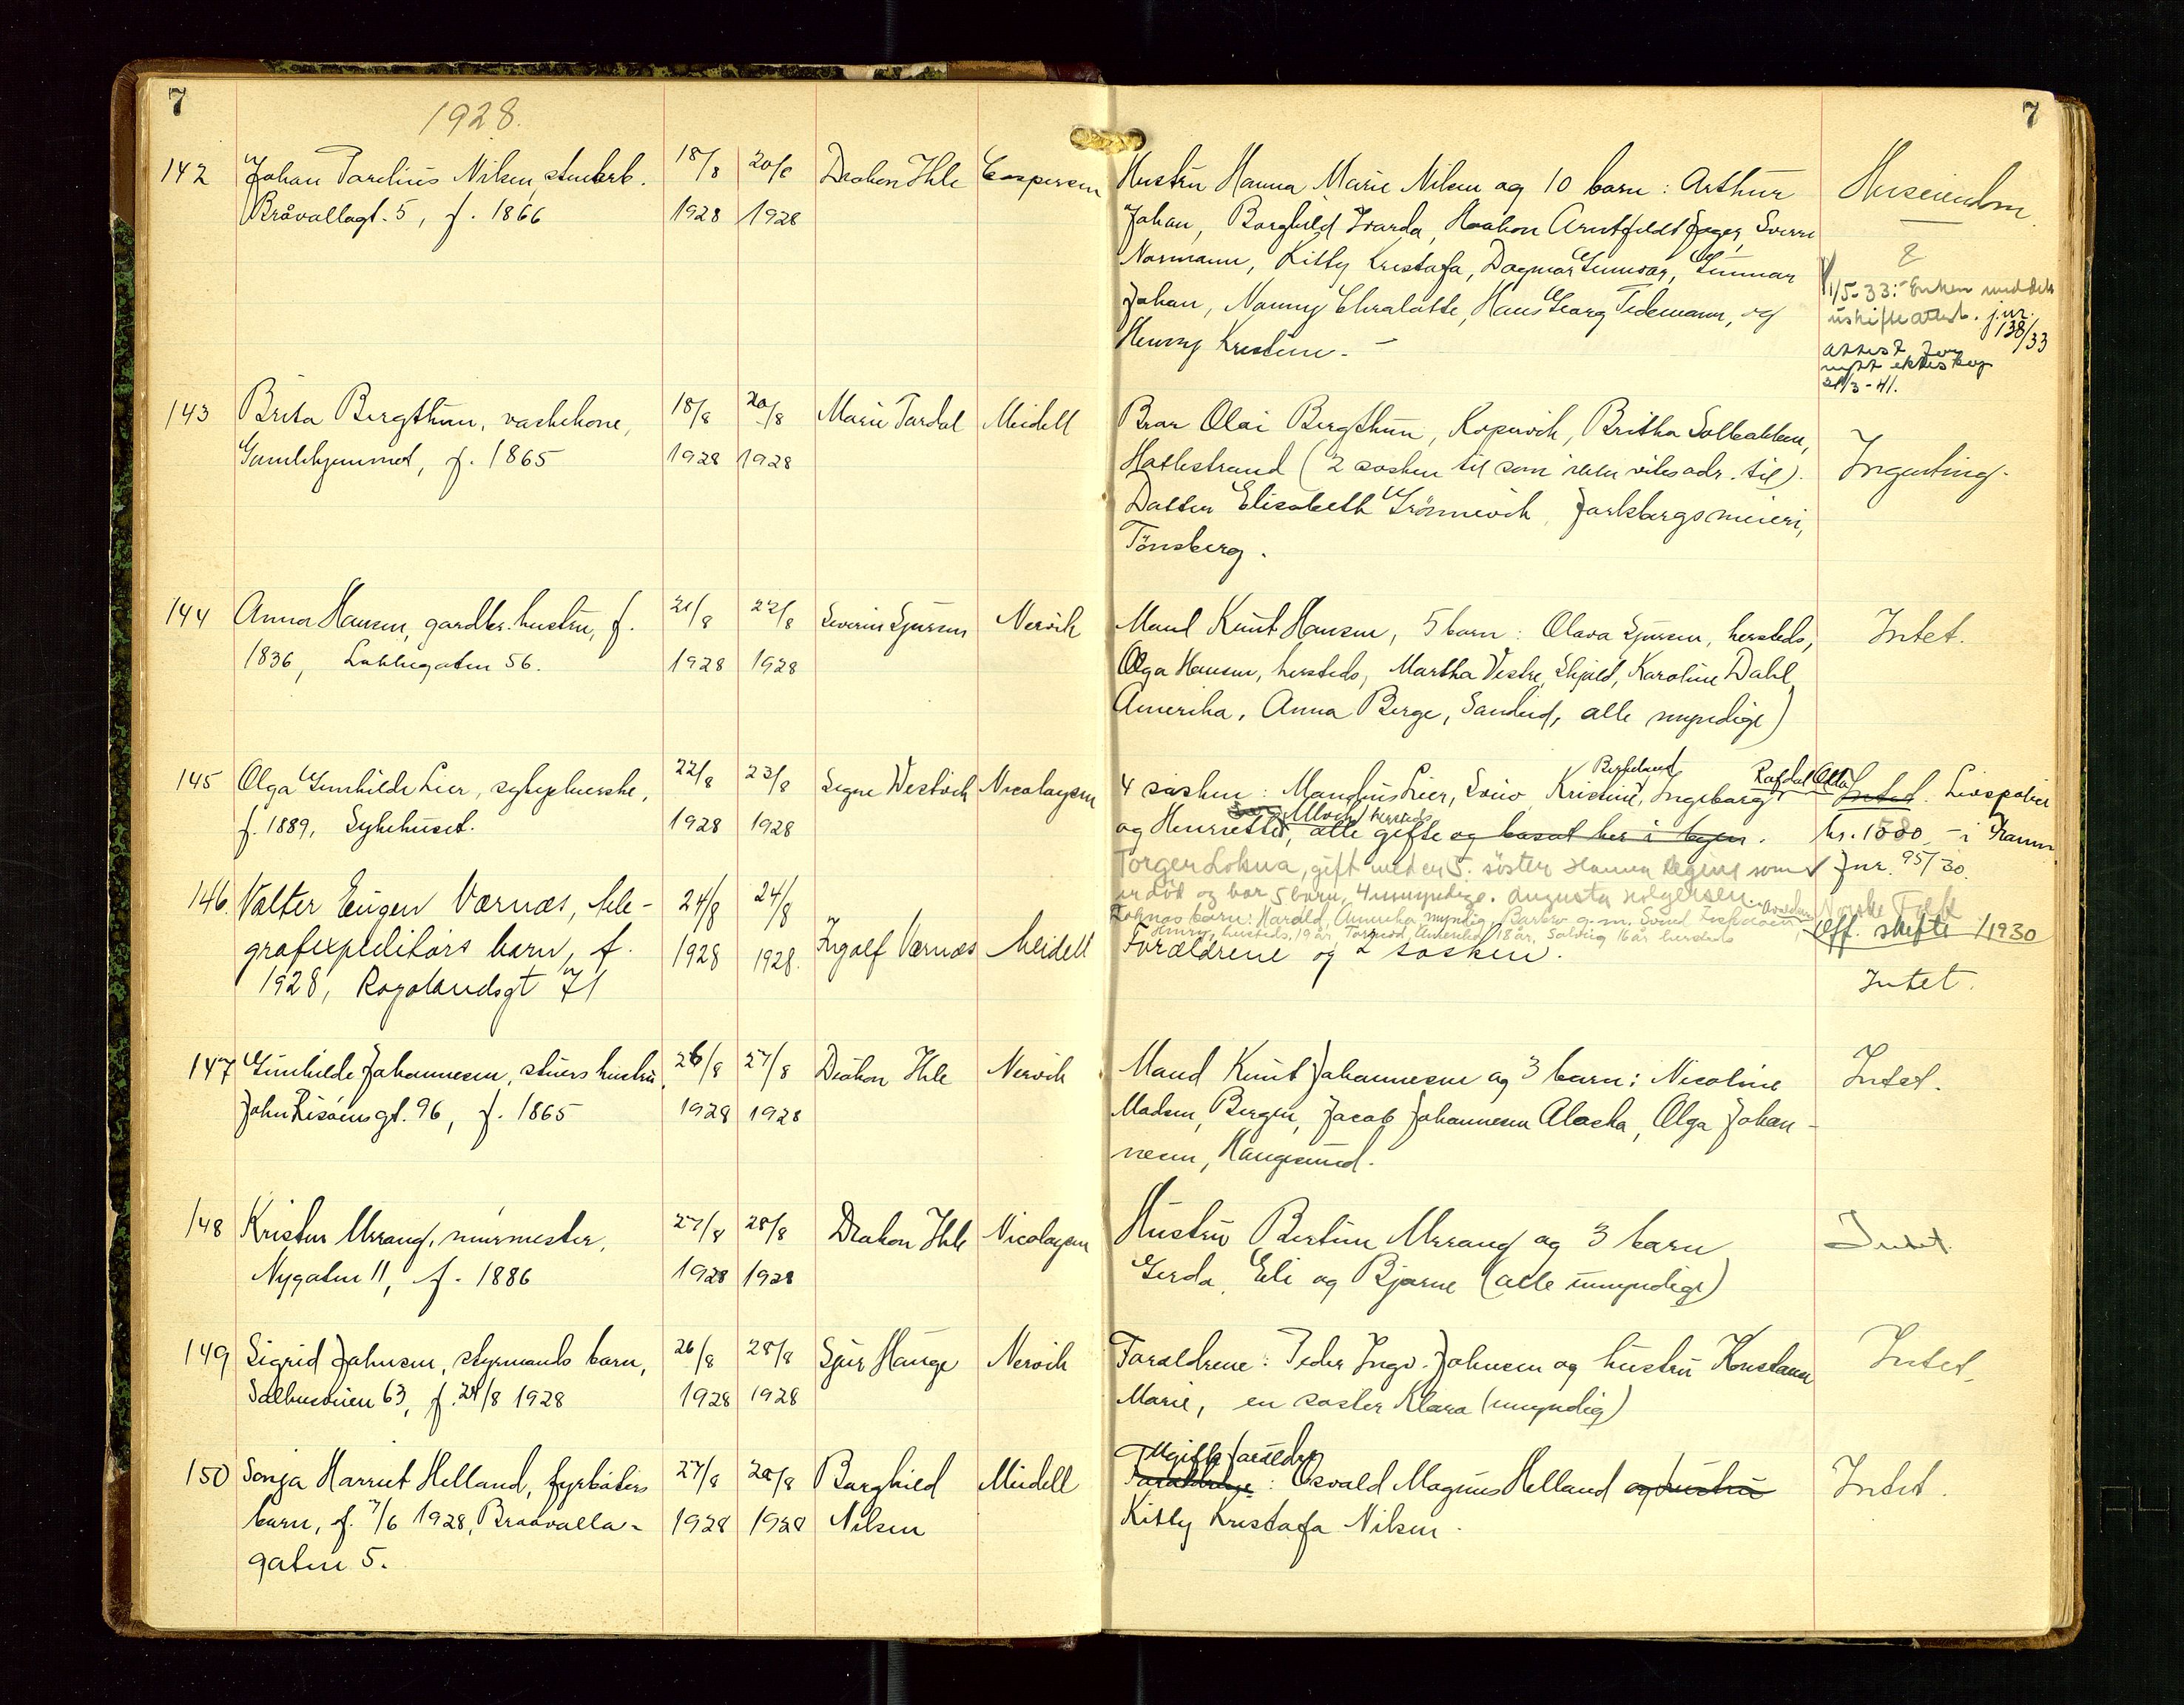 7
1928.
7
142 Johan Parelius Nilsen, stuerb. 18/8 20/8 Diakon Ihle Caspersen Hustru Hanna Marie Nilsen og 10 barn: Arthur Huseiendom
Bråvallagt. 5, f. 1866 1928 1928 Johan, Borghild Ivarda, Haakon Arntfeldt Jæger, Sverre
Normann, Kitty Kristofa, Dagmar Gunvor, Gunnar
Johan, Nanny Charlotte, Hans Georg Tidemann, og
Henny Kristine. -
1/5-33: Enken meddelt
uskifteattest. jnr. 138/33
attest for
nytt ekteskap
21/3-41.
143 Brita Bergthun, vaskekone, 18/8 20/8 Marie Tardal Meidell Bror Olai Bergthun, Kopervik, Britha Solbakken, Ingenting.
Gamlehjemmet, f. 1865 1928 1928 Hatlestrand (2 søsken til som ikke vites adr. til).
Datter Elisabeth Grönnevik, Jarlsbergs meieri,
Tönsberg.
144 Anna Hansen, gardbr. hustru, f. 21/8 22/8 Severin Sjursen Nervik Mand Knut Hansen, 5 barn: Olava Sjursen, hersteds, Intet.
1836, Lakkegaten 56. 1928 1928 Olga Hansen, hersteds, Martha Vestre, Skjold, Karoline Dahl
Amerika, Anna Berge, Sandeid, alle myndige)
145 Olga Gunhilde Lier, sykepleierske, 22/8 23/8 Signe Westvik Nicolaysen 4 søsken: Mandius Lier, Svino, Kristine Birkeland, Ingeborg Intet. Livspolice
f. 1889, Sykehuset. 1928 1928 og Henriette Alvik hersteds, alle gifte og bosat her i byen. kr. 1500,- i Fram
Torger Lokna, gift med en 5. söster Hanna Regine som Jnr. 95/30.
er död og har 5 barn, 4 umyndige. Augusta Holgersen. Norske Folk
Loknas barn: Harald, Amerika, myndig, Henry, hersteds, 19 år, Tormod, Amerika, 18 år, Solveig 16 år hersteds
Off. skifte /1930
146. Valter Eugen Værnæs, tele- 24/8 24/8 Ingolf Værnæs Meidell Forældrene og 2 søsken. Intet.
grafexpeditörs barn, f. 1928 1928.
1928, Rogalandsgt 71
147 Gunhilde Johannesen, stuers hustru, 26/8 27/8 Diakon Ihle Nervik Mand Knut Johannesen og 3 barn: Nicoline Intet.
John Risöens gt. 96, f. 1865 1928 1928 Madsen, Bergen, Jacob Johannesen Alaska, Olga Johan-
nesen, Haugesund.
148 Kristen Mrrang, murmester, 27/8 28/8 Diakon Ihle Nicolaysen Hustru Bertine Mrrang og 3 barn Intet.
Nygaten 11, f. 1886 1928 1928 Gerda, Eli og Bjarne (alle umyndige)
149 Sigrid Johnsen, styrmands barn, 26/8 28/8 Sjur Hauge Nervik Forældrene: Peder Ingv. Johnsen og hustru Konstanse Intet.
Salhusveien 63, f. 24/8 1928 1928 1928 Marie, en søster Klara (umyndig)
150 Sonja Harriet Helland, fyrböters 27/8 28/8 Borghild Meidell Ugifte forældre Forældrene: Osvald Magnus Helland og hustru Intet.
barn, f. 7/6 1928, Braavalla- 1928 1928 Nilsen Kitty Kristofa Nilsen.
gaten 5.